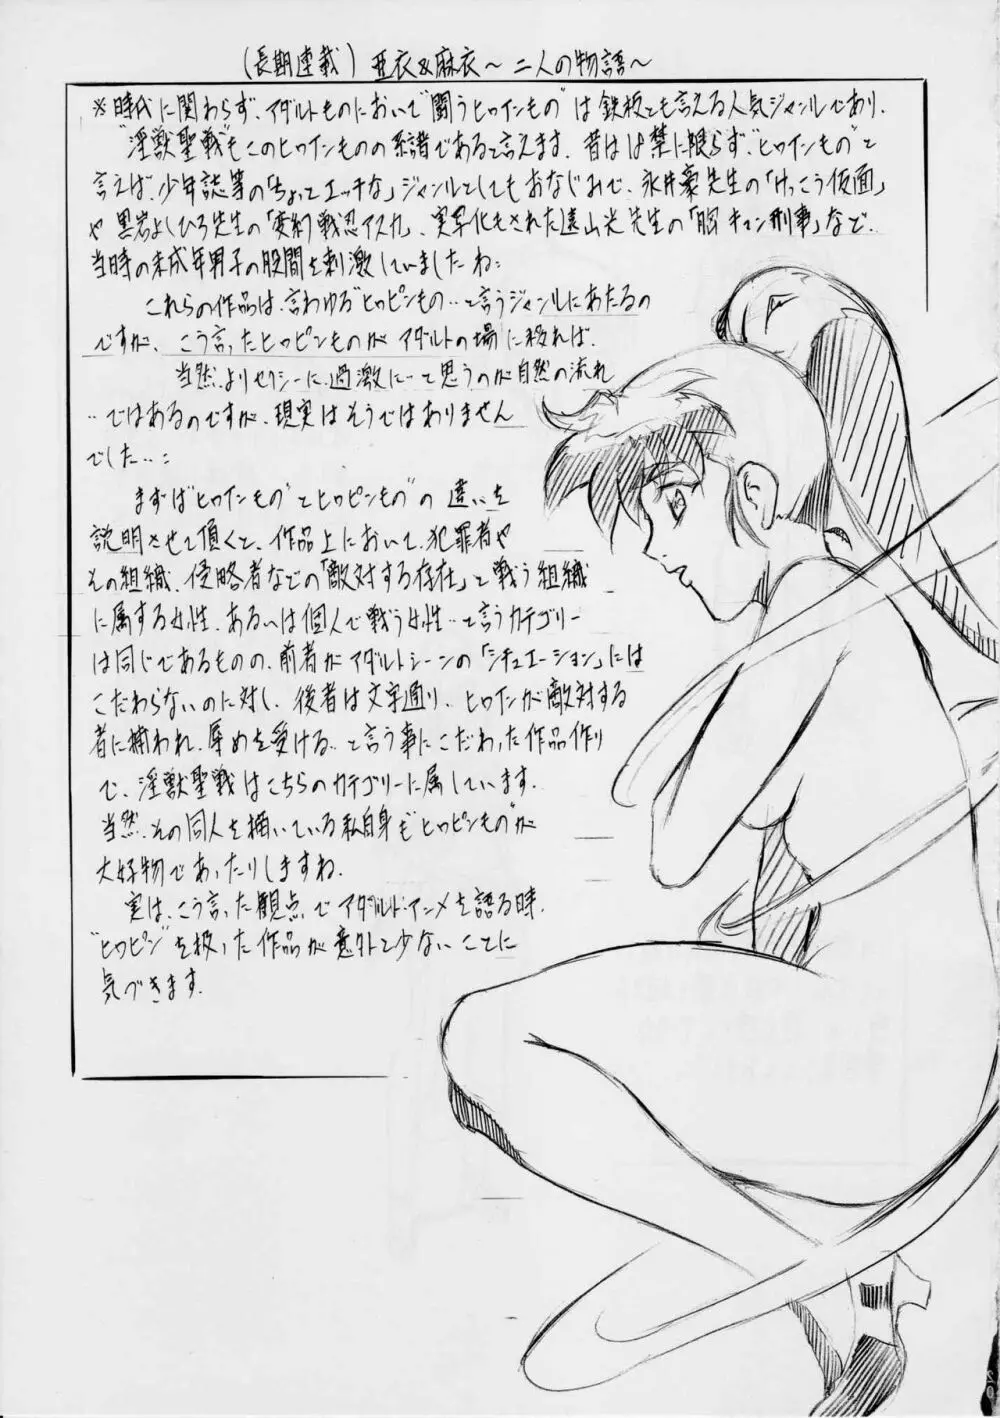 (長期連載) 亜衣&麻衣〜二人の物語〜
※時代に関わらず、アダルトものにおいて"闘うヒロインもの"は鉄板とも言える人気ジャンルであり、
"淫獣聖戦"もこのヒロインものの系譜であると言えます。昔は18禁に限らず、"ヒロインもの"と
言えば、少年誌等の「ちょっとエッチな」ジャンルとしてもおなじみで、永井豪先生の「けっこう仮面」
や黒岩よしひろ先生の「変幻戦忍アスカ」、実写化もされた遠山光先生の「胸キュン刑事」など、
当時の未成年男子の股間を刺激していましたね…
これらの作品は、言わゆる"ヒロピンもの"…と言うジャンルにあたるの
ですが、こう言ったヒロピンものがアダルトの場に移れば、
当然、よりセクシーに、過激に…と思うのが自然の流れ
…ではあるのですが、現実はそうではありません
でした…:
まずは"ヒロインもの"と"ヒロピンもの"の違いを
説明させて頂くと、作品上において、犯罪者や
その組織、侵略者などの「敵対する存在」と戦う組織
に属する女性、あるいは個人で戦う女性…と言うカテゴリー
は同じであるものの、前者がアダルトシーンの「シチュエーション」には
こだわらないのに対し、後者は文字通り、ヒロインが敵対する
者に捕われ、辱めを受ける…と言う事にこだわった作品作り
で、淫獣聖戦はこちらのカテゴリーに属しています。
当然、その同人を描いている私自身も"ヒロピンもの"が
大好物であったりしますね。
実は、こう言った観点でアダルトアニメを語る時、
"ヒロピン"を扱った作品が意外と少ないことに
気づきます。